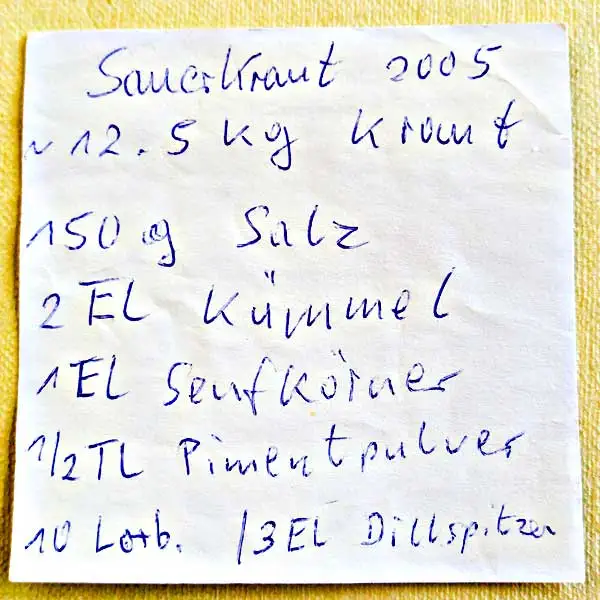 Sauerkraut 2005
~ 12.5 kg Kraut
150 g Salz
2 EL Kümmel
1 EL Senfkörner
1/2 TL Pimentpulver
10 Lorb. /3 EL Dillspitzen